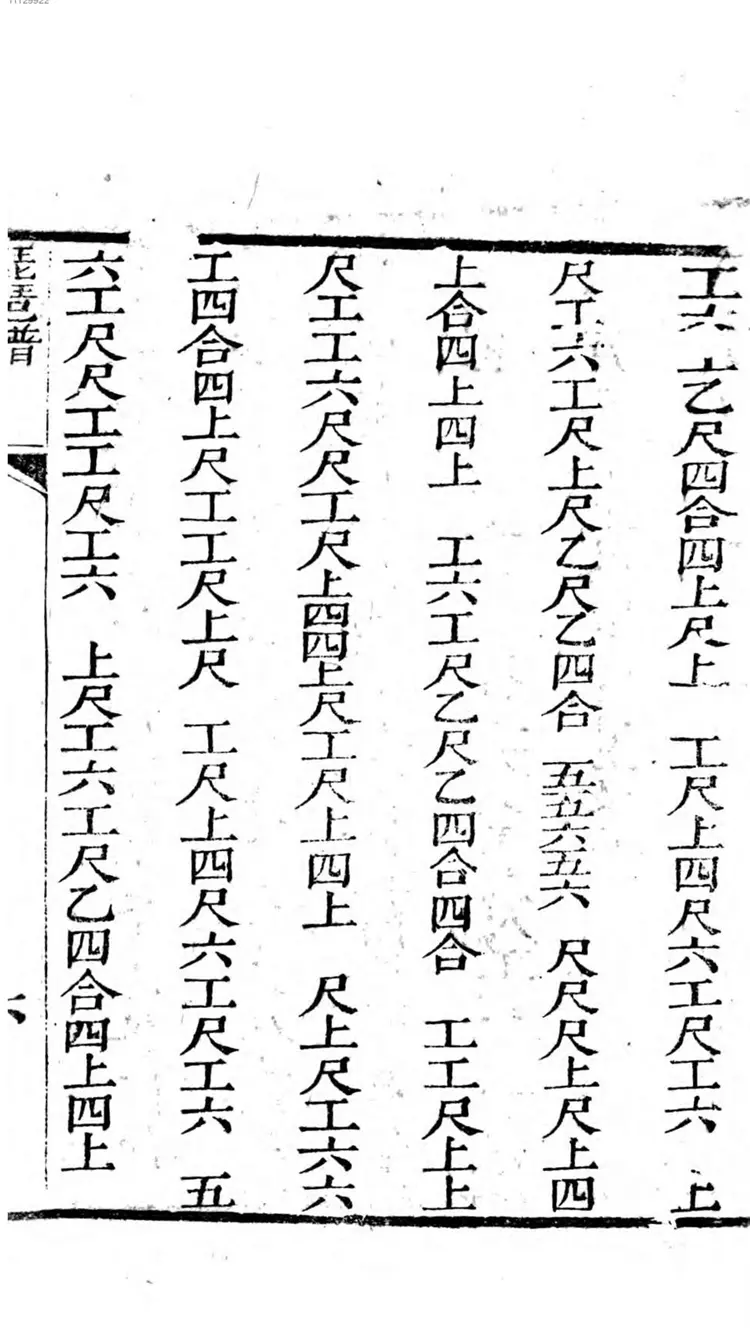 工六 上乙尺四合四上尺上 工尺上四尺六工尺工六 上
尺工六工尺上尺乙尺乙四合 五五六五六 尺尺尺上尺上四
上合四上四上 工六工尺乙尺乙四合四合 工工尺上上
尺工工六尺尺工尺上四四上尺工尺上四上 尺上尺工六六
工四合四上尺工工尺上尺 工尺上四尺六工尺工六 五
六工尺尺工工尺工六 上尺工六工尺乙四合四上四上
琵琶譜